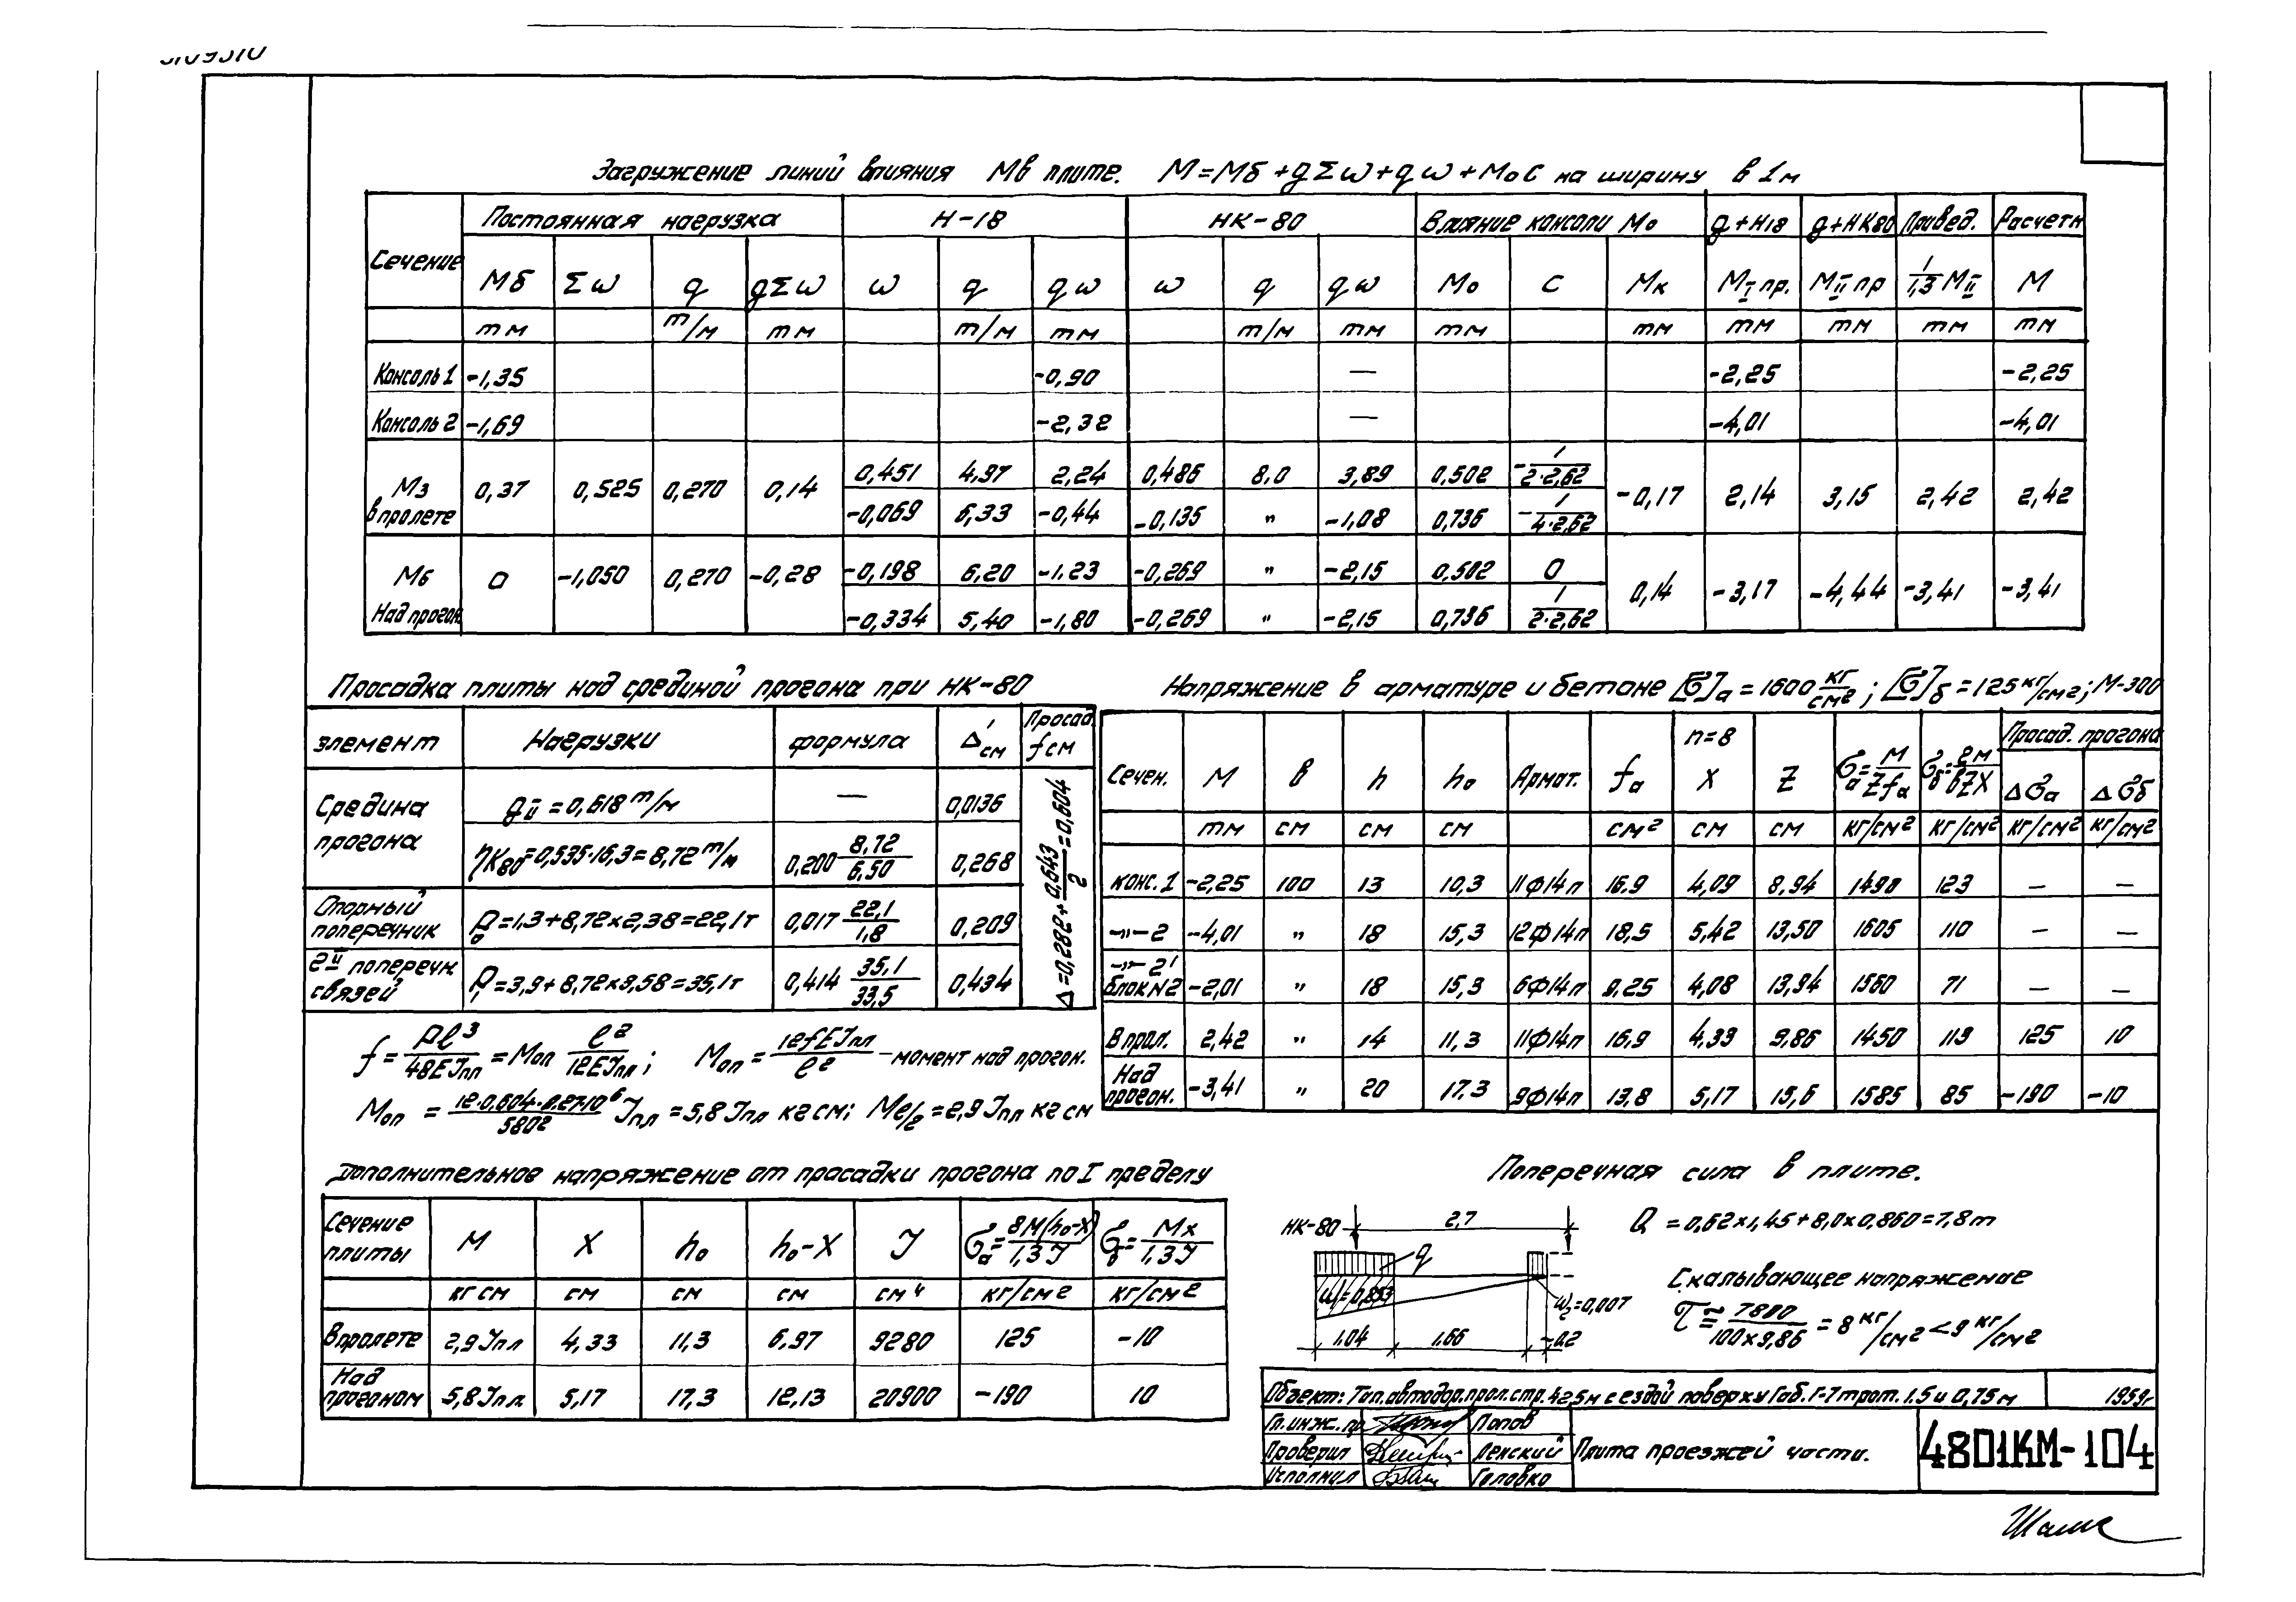 Загружение линий влияния М в плите. М=Мб+gΣω+qω+М₀С на ширину в 1м
Сечение | Постоянная нагрузка | Н-18 | НК-80 | Влияние консоли М₀ | g+Н18 | g+НК80 | Привед. | Расчетн
Мб | Σω | q | gΣω | ω | q | qω | ω | q | qω | М₀ | С | Мк | М I пр. | М II пр | 1/1,3 М II | М
тм | т/м | тм | т/м | тм | т/м | тм | тм | тм | тм | тм | тм | тм
Консоль 1 | -1,35 | -0,90 | — | -2,25 | -2,25
Консоль 2 | -1,69 | -2,32 | — | -4,01 | -4,01
М3 в пролете | 0,37 | 0,525 | 0,270 | 0,14 | 0,451 | 4,97 | 2,24 | 0,486 | 8,0 | 3,89 | 0,502 | -1/2·2,62 | -0,17 | 2,14 | 3,15 | 2,42 | 2,42
-0,069 | 6,33 | -0,44 | -0,135 | " | -1,08 | 0,736 | -1/4·2,62
Мб Над прогон. | 0 | -1,050 | 0,270 | -0,28 | -0,198 | 6,20 | -1,23 | -0,269 | " | -2,15 | 0,502 | 0 | 0,14 | -3,17 | -4,44 | -3,41 | -3,41
-0,334 | 5,40 | -1,80 | -0,269 | " | -2,15 | 0,736 | 1/2·2,62
Просадка плиты над срединой прогона при НК-80
элемент | Нагрузки | формула | Δ' см | Просад. f см
Средина прогона | g II = 0,618 т/м | — | 0,0136 | Δ=0,282+0,643/2=0,604
ηК80=0,535·16,3=8,72 т/м | 0,200 8,72/6,50 | 0,268
Опорный поперечник | P₀=1,3+8,72×2,38=22,1т | 0,017 22,1/1,8 | 0,209
2й поперечн. связей | P₁=3,9+8,72×3,58=35,1т | 0,414 35,1/33,5 | 0,434
f=Pl³/48EJпл=Моп l²/12EJпл; Моп=12fEJпл/l² —момент над прогон.
Моп = 12·0,604·0,27·10⁶/580² Jпл=5,8Jпл кг см; Мl/2=2,9Jпл кг см
Напряжение в арматуре и бетоне [σ]а=1600 кг/см²; [σ]б=125 кг/см²; М-300
Сечен. | М | в | h | h₀ | Армат. | fа | n=8 X | Z | σа=М/Zfа | σб=2М/вZX | Просад. прогона
Δσа | Δσб
тм | см | см | см | см² | см | см | кг/см² | кг/см² | кг/см² | кг/см²
конс.1 | -2,25 | 100 | 13 | 10,3 | 11ф14п | 16,9 | 4,09 | 8,94 | 1490 | 123 | — | —
—"— 2 | -4,01 | " | 18 | 15,3 | 12ф14п | 18,5 | 5,42 | 13,50 | 1605 | 110 | — | —
—"— 2' блок N2 | -2,01 | " | 18 | 15,3 | 6ф14п | 9,25 | 4,08 | 13,94 | 1560 | 71 | — | —
В прол. | 2,42 | " | 14 | 11,3 | 11ф14п | 16,9 | 4,33 | 9,86 | 1450 | 113 | 125 | 10
Над прогон. | -3,41 | " | 20 | 17,3 | 9ф14п | 13,8 | 5,17 | 15,6 | 1585 | 85 | -190 | -10
Дополнительное напряжение от просадки прогона по I пределу
Сечение плиты | М | X | h₀ | h₀-X | J | σа=8М(h₀-X)/1,3J | σб=Мx/1,3J
кг см | см | см | см | см⁴ | кг/см² | кг/см²
В пролете | 2,9Jпл | 4,33 | 11,3 | 6,97 | 9280 | 125 | -10
Над прогоном | 5,8Jпл | 5,17 | 17,3 | 12,13 | 20900 | -190 | 10
Поперечная сила в плите.
НК-80 2,7
q
ω=0,853
ω₂=0,007
1.04 1.66 0.2
Q=0,62×1,45+8,0×0,860=7,8т
Скалывающее напряжение
τ≈7800/100×9,86=8 кг/см²<9 кг/см²
Объект: Тип. автодор. прол. стр. 42,5м с ездой поверху Габ. Г-7 трот. 1.5 и 0,75м 1959г
Гл. инж. пр. Попов
Проверил Ленский
Исполнил Головко
Плита проезжей части.
4801КМ-104